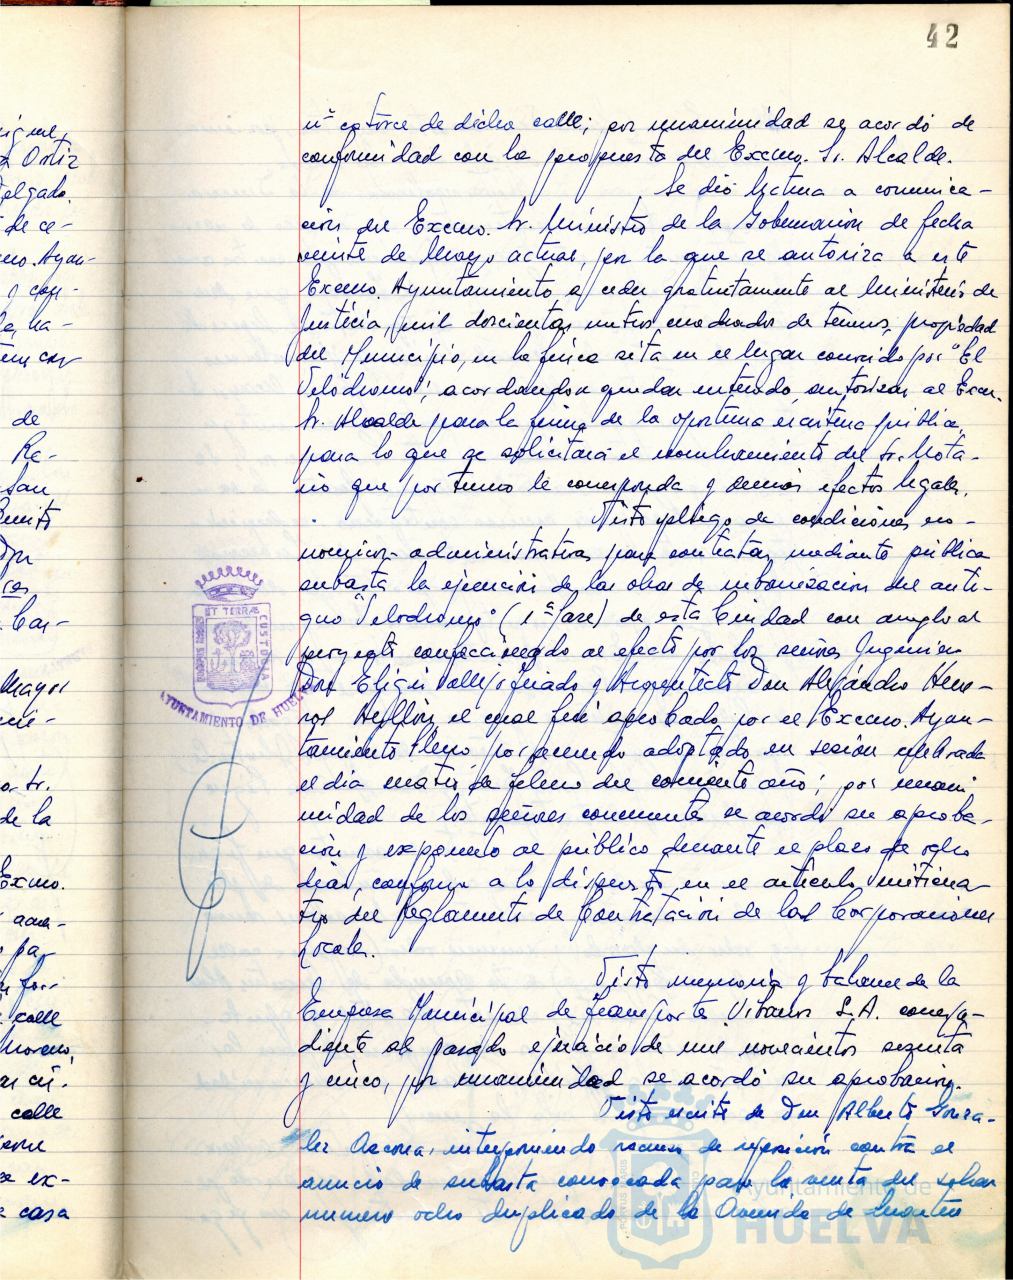 42
igual,
Ortiz
Delgado.
de ce-
mo. Ayun-
y cap-
ha-
de
Re-
San
Benito
Don
Car-
Mayor
Sr.
de la
Excmo.
acor-
pa-
for-
calle
Moreno,
calle
ex-
casa
nº catorce de dicha calle; por unanimidad se acordó de
conformidad con la propuesta del Excmo. Sr. Alcalde.
Se dió lectura a comunica-
ción del Excmo. Sr. Ministro de la Gobernación de fecha
veinte de Mayo actual, por la que se autoriza a este
Excmo. Ayuntamiento a ceder gratuitamente al Ministerio de
Justicia, mil doscientos metros cuadrados de terreno, propiedad
del Municipio, en la finca sita en el lugar conocido por "El
Velódromo"; acordándose quedar enterado, autorizar al Excmo.
Sr. Alcalde para la firma de la oportuna escritura pública,
para lo que se solicitará el nombramiento del Sr. Nota-
rio que por turno le corresponda y demás efectos legales.
Visto pliego de condiciones eco-
nómico-administrativas para contratar mediante pública
subasta la ejecución de las obras de urbanización del anti-
guo "Velódromo" (1ª fase) de esta Ciudad con arreglo al
proyecto confeccionado al efecto por los señores Ingeniero
Don Eligio Vallejo y Arquitecto Don Alejandro Herre-
ros Ayllón, el cual fué aprobado por el Excmo. Ayun-
tamiento Pleno por acuerdo adoptado en sesión celebrada
el día de del corriente año; por unani
midad de los señores concurrentes se acordó su aproba-
ción y exponerlo al público durante el plazo de ocho
días, conforme a lo dispuesto en el artículo veinticua-
tro del Reglamento de Contratación de las Corporaciones
Locales.
Visto memoria y balance de la
Empresa Municipal de Transportes Urbanos S.A. correspon-
diente al pasado ejercicio de mil novecientos sesenta
y cinco, por unanimidad se acordó su aprobación.
Visto escrito de Don Alberto Gonzá-
lez interponiendo recurso de reposición contra el
anuncio de subasta convocada para la venta del solar
número ocho duplicado de la Avenida de
ET TERRÆ CUSTODIA
AYUNTAMIENTO DE HUELVA
Ayuntamiento de
HUELVA